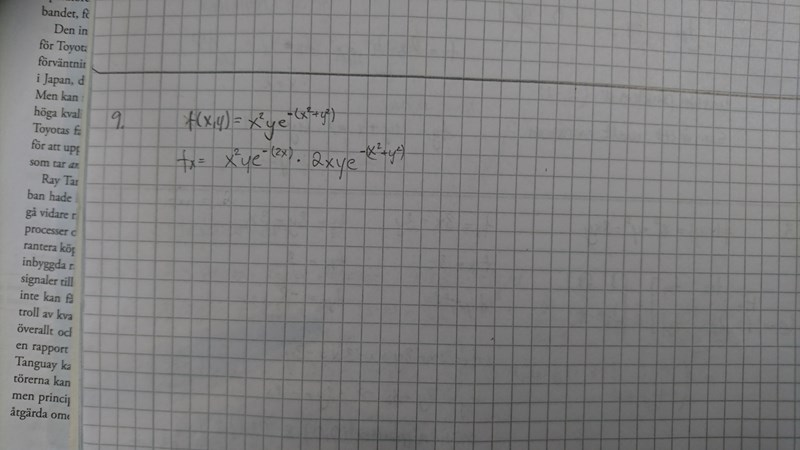 bandet, f
Den in
för Toyot
förväntnin
i Japan, d
Men kan
höga kval
Toyotas
för att upp
som tar
Ray Tan
ban hade
gå vidare
processer
rantera köp
inbyggda
signaler till
inte kan
troll av kva
överallt och
en rapport
Tanguay
törerna kan
men princip
åtgärda
9. f(x,y) = x²ye^-(x²+y²)
fx = x²ye^-(2x) · 2xye^-(x²+y²)